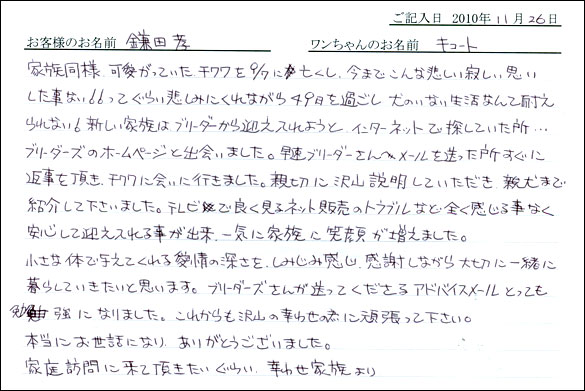 ご記入日 2010年11月26日
お客様のお名前 鎌田 孝 ワンちゃんのお名前 キュート
家族同様、可愛がっていたチワワを9/7に亡くし、今までこんな悲しい寂しい思い
した事ない!!ってぐらい悲しみにくれながら49日を過ごし犬のいない生活なんて耐え
られない!新しい家族はブリーダーから迎え入れようと、インターネットで探していた所…
ブリーダーズのホームページと出会いました。早速ブリーダーさんへメールを送った所すぐに
返事を頂き、チワワに会いに行きました。親切に沢山説明していただき、親犬まで
紹介して下さいました。テレビで良く見るネット販売のトラブルなど全く感じる事なく
安心して迎え入れる事が出来、一気に家族に笑顔が増えました。
小さな体で与えてくれる愛情の深さを、しみじみ感じ、感謝しながら大切に一緒に
暮らしていきたいと思います。ブリーダーズさんが送ってくださるアドバイスメールとっても
勉強になりました。これからも沢山の幸わせの為に頑張って下さい。
本当にお世話になり、ありがとうございました。
家庭訪問に来て頂きたいぐらい、幸わせ家族より